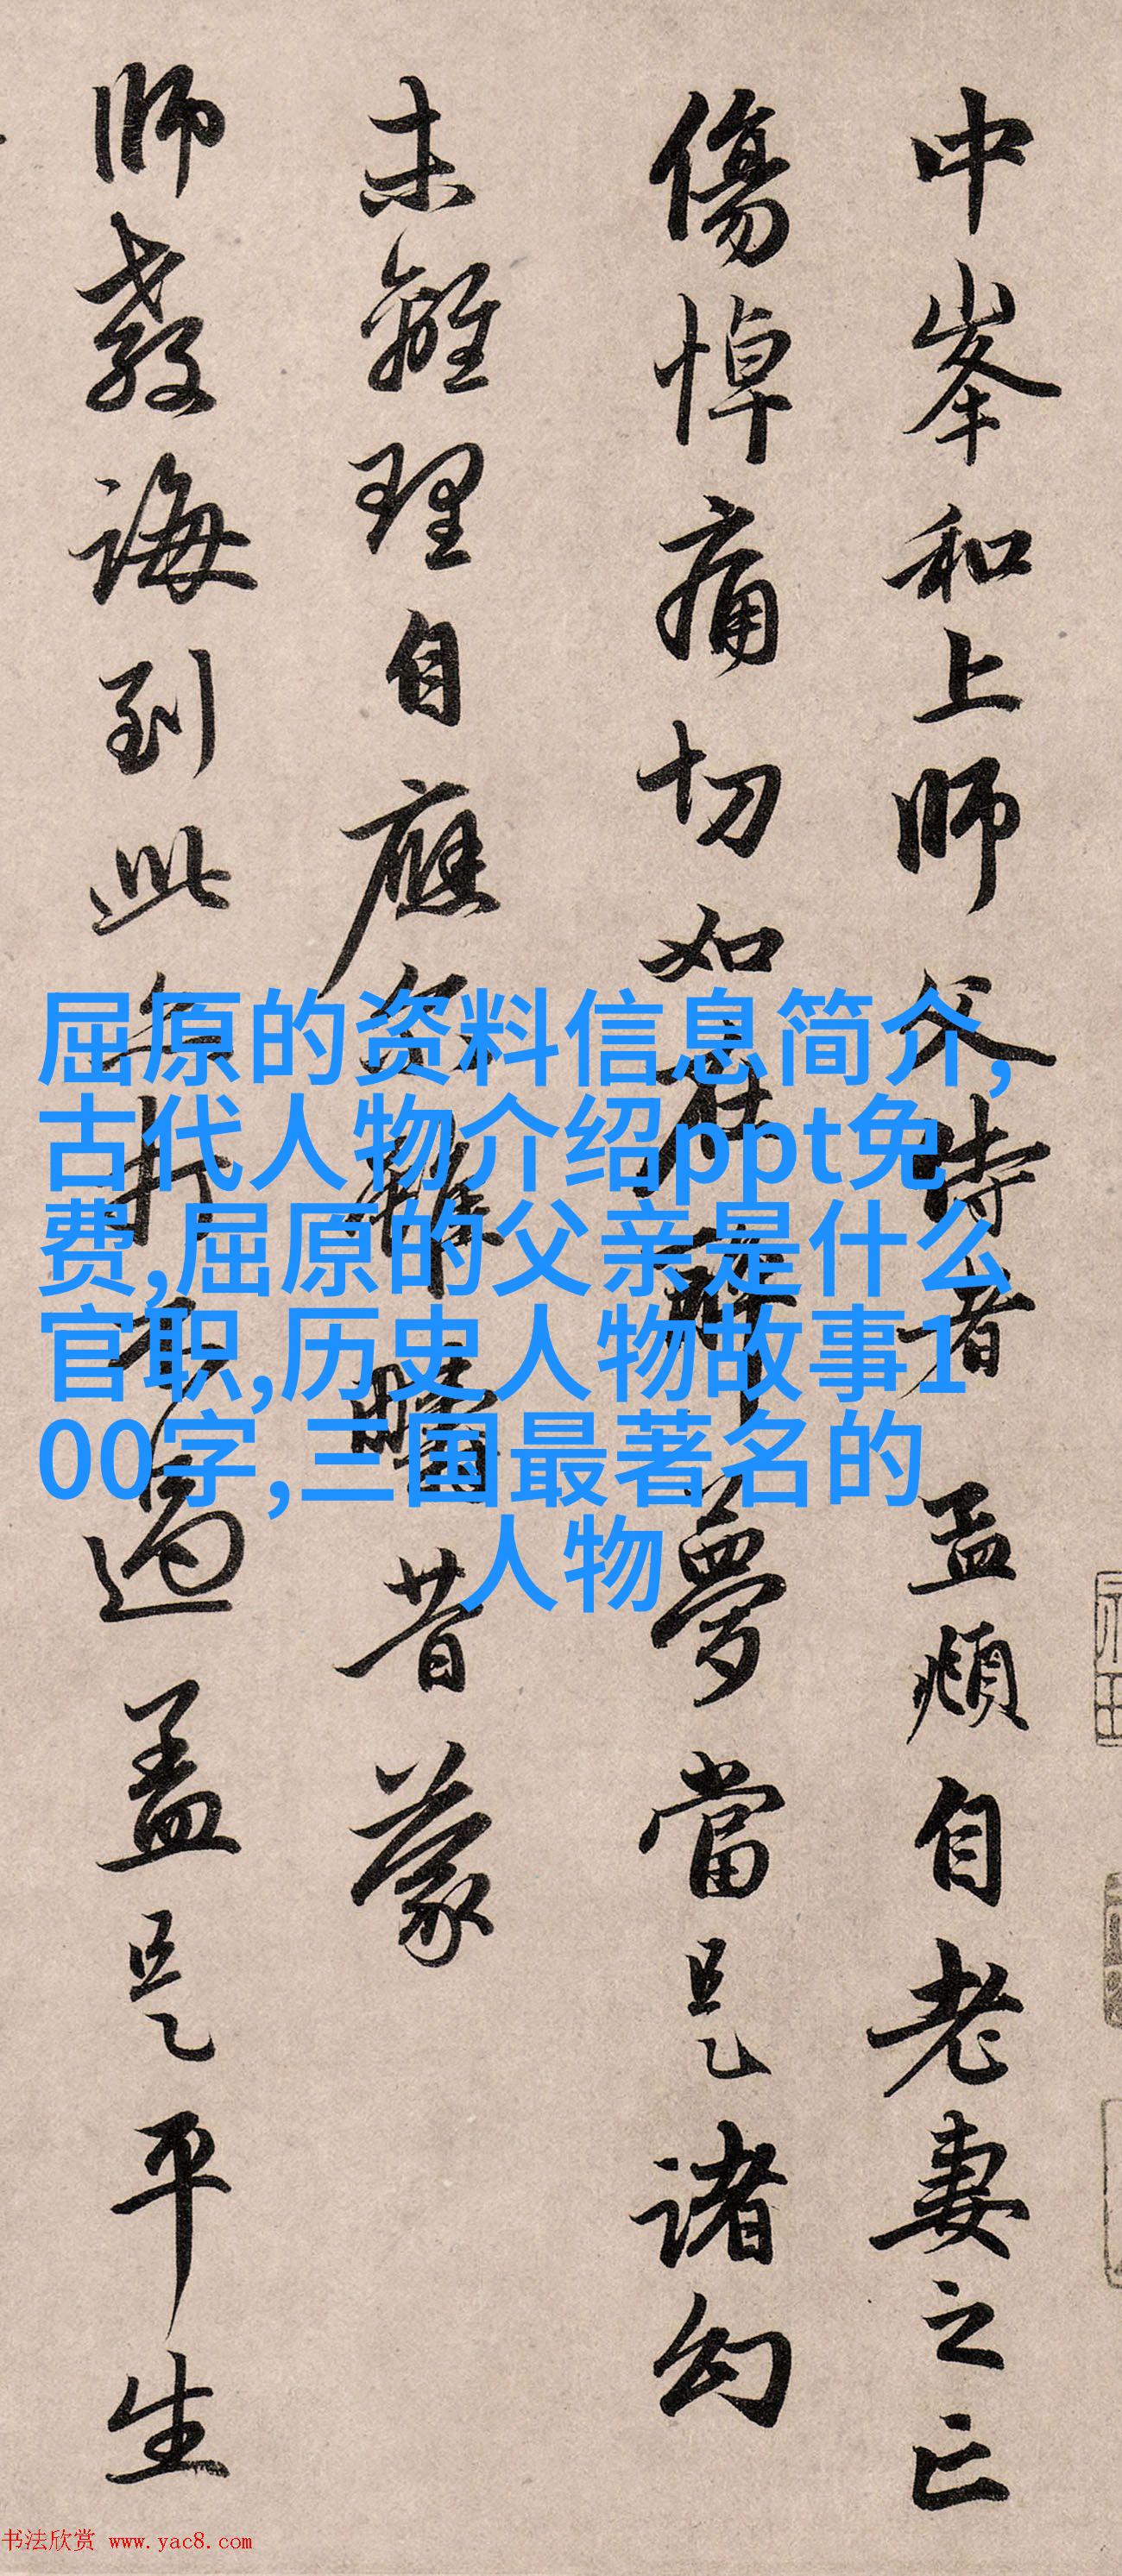 中峯和上師父侍者 孟頫自老妻之亡
傷悼痛切如在醉夢當是諸幻
未離理自應尔雖疇昔蒙
師教誨到此亦打不過盖是平生
屈原的资料信息简介,
古代人物介绍ppt免
费,屈原的父亲是什么
官职,历史人物故事1
00字,三国最著名的
人物
书法欣赏 www.yac8.com